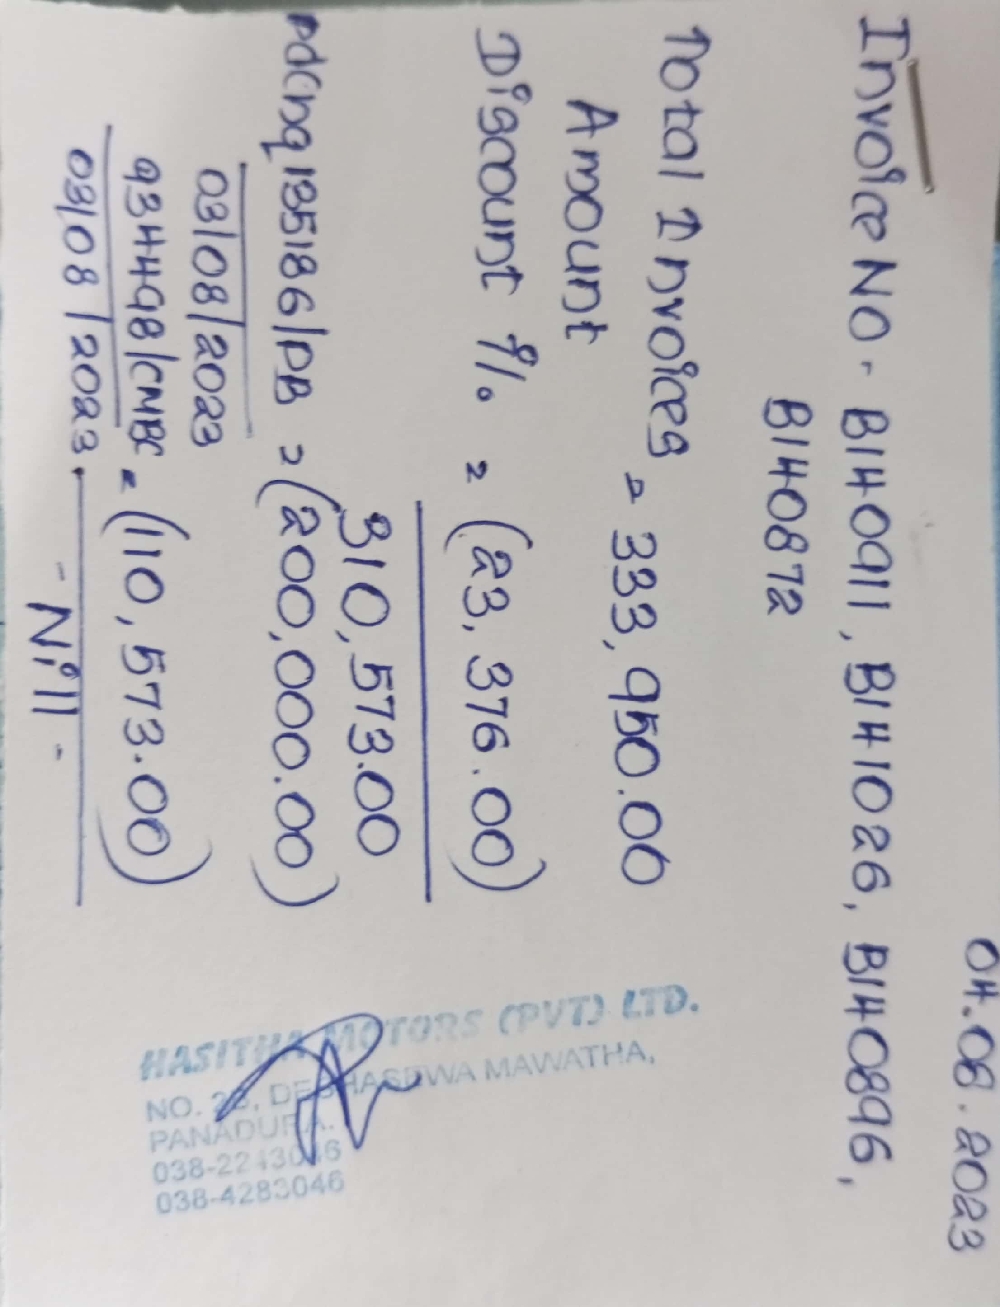 04.08.2023
Invoice NO - B140911, B141026, B140896,
B140872
Total Invoices = 333,950.00
Amount
Discount 7%. = (23,376.00)
310,573.00
pdcnq 135186/PB = (200,000.00)
03/08/2023
934498/CMBC = (110,573.00)
03/08/2023.
- Nill -
HASITHA MOTORS (PVT) LTD.
MAWATHA,
PANADURA.
038-2243046
038-4283046